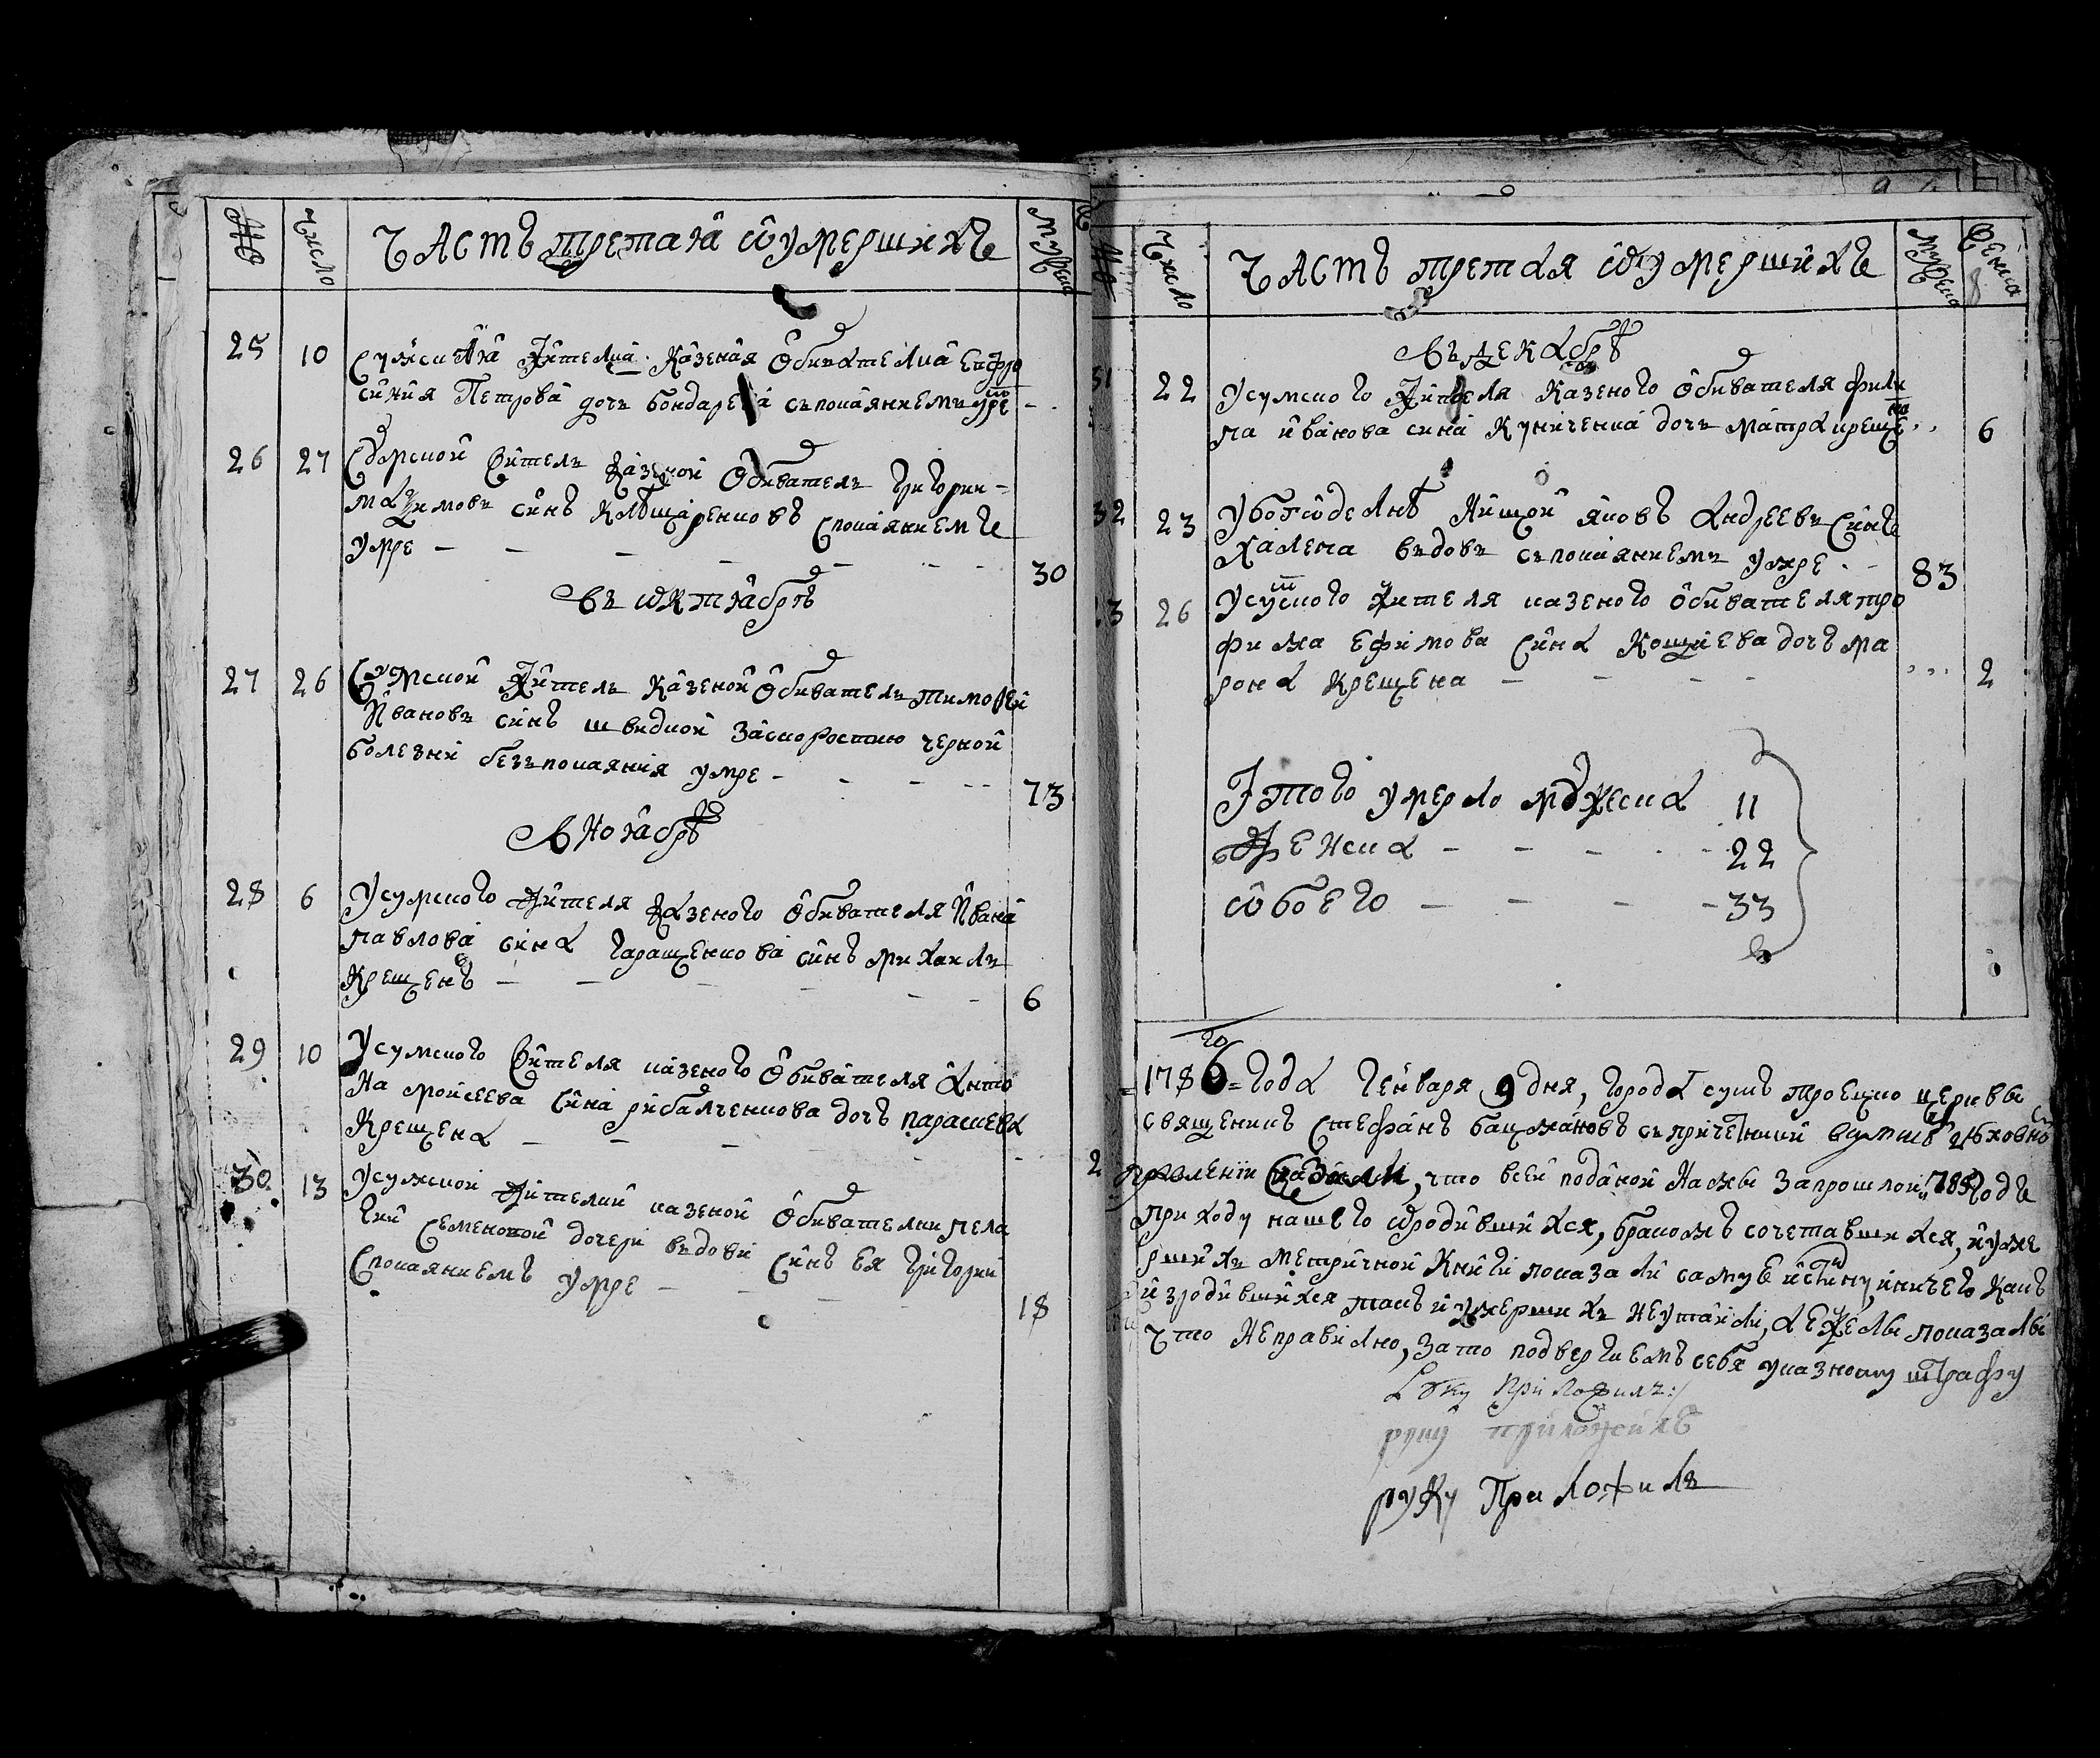 число
Часть третая ѿ умершихъ
25 10 Сумская жителка казеная обивателка Ефро
синия Петрова доч Бондарева съ покаяниемъ умре
26 27 Сумской житель казеной обиватель Григории
Маѯимовъ синъ Клещаренковъ с покаяниемъ
умре 30
Въ октябрѣ
27 26 Сумской житель казеной обиватель Тимофей
Ивановъ синъ Швидкой за скоростию черной
болезни безъ покаяния умре 73
В ноябрѣ
28 6 У сумского жителя казеного обивателя Ивана
Павлова сина Гаращенкова синъ Михаилъ
крещенъ 6
29 10 У сумского жителя казеного обивателя Анто
на Мойсеева сина Рибалченкова дочъ Параскева
крещена
2
30 13 У сумской жителки казеной обивателки Пела
гии Семеновой дочери вдови синъ ея Григорий
с покаяниемъ умре 18
Число
Часть третая ѿ умершихъ
Женска
Въ декабрѣ
31 22 У сумского жителя казеного обивателя Фили
па Иванова сина доч Матрона креще
на 6
32 23 Убогоделнѣ нищой Яковъ Андреевъ синъ
Халепа въдовъ съ покаяниемъ умре 83
33 26 У сумского жителя казеного обивателя Тро
фима Ефимова сина Кощиева дочъ Ма
рона крещена 2
Итого умерло мужеска 11
женска 22
обоего 33
1786го года генваря 9 дня, города Сумъ Троецкой церкви
священникъ Стефанъ Бацмановъ съ причетники в сумскѣ духовно
правлении сказали, что всей поданой нами за прошлои 785 годъ
приходу нашего ѿ родившихся, бракомъ сочетавшихся, и уме
рших метричной книги показали самую истину, и ничего какъ
из родившихся такъ и умерших не утаили, а ежели показали
что неправилно, за то подвергаемъ себя указному штрафу
руку приложилъ
руку приложилъ
руку приложилъ